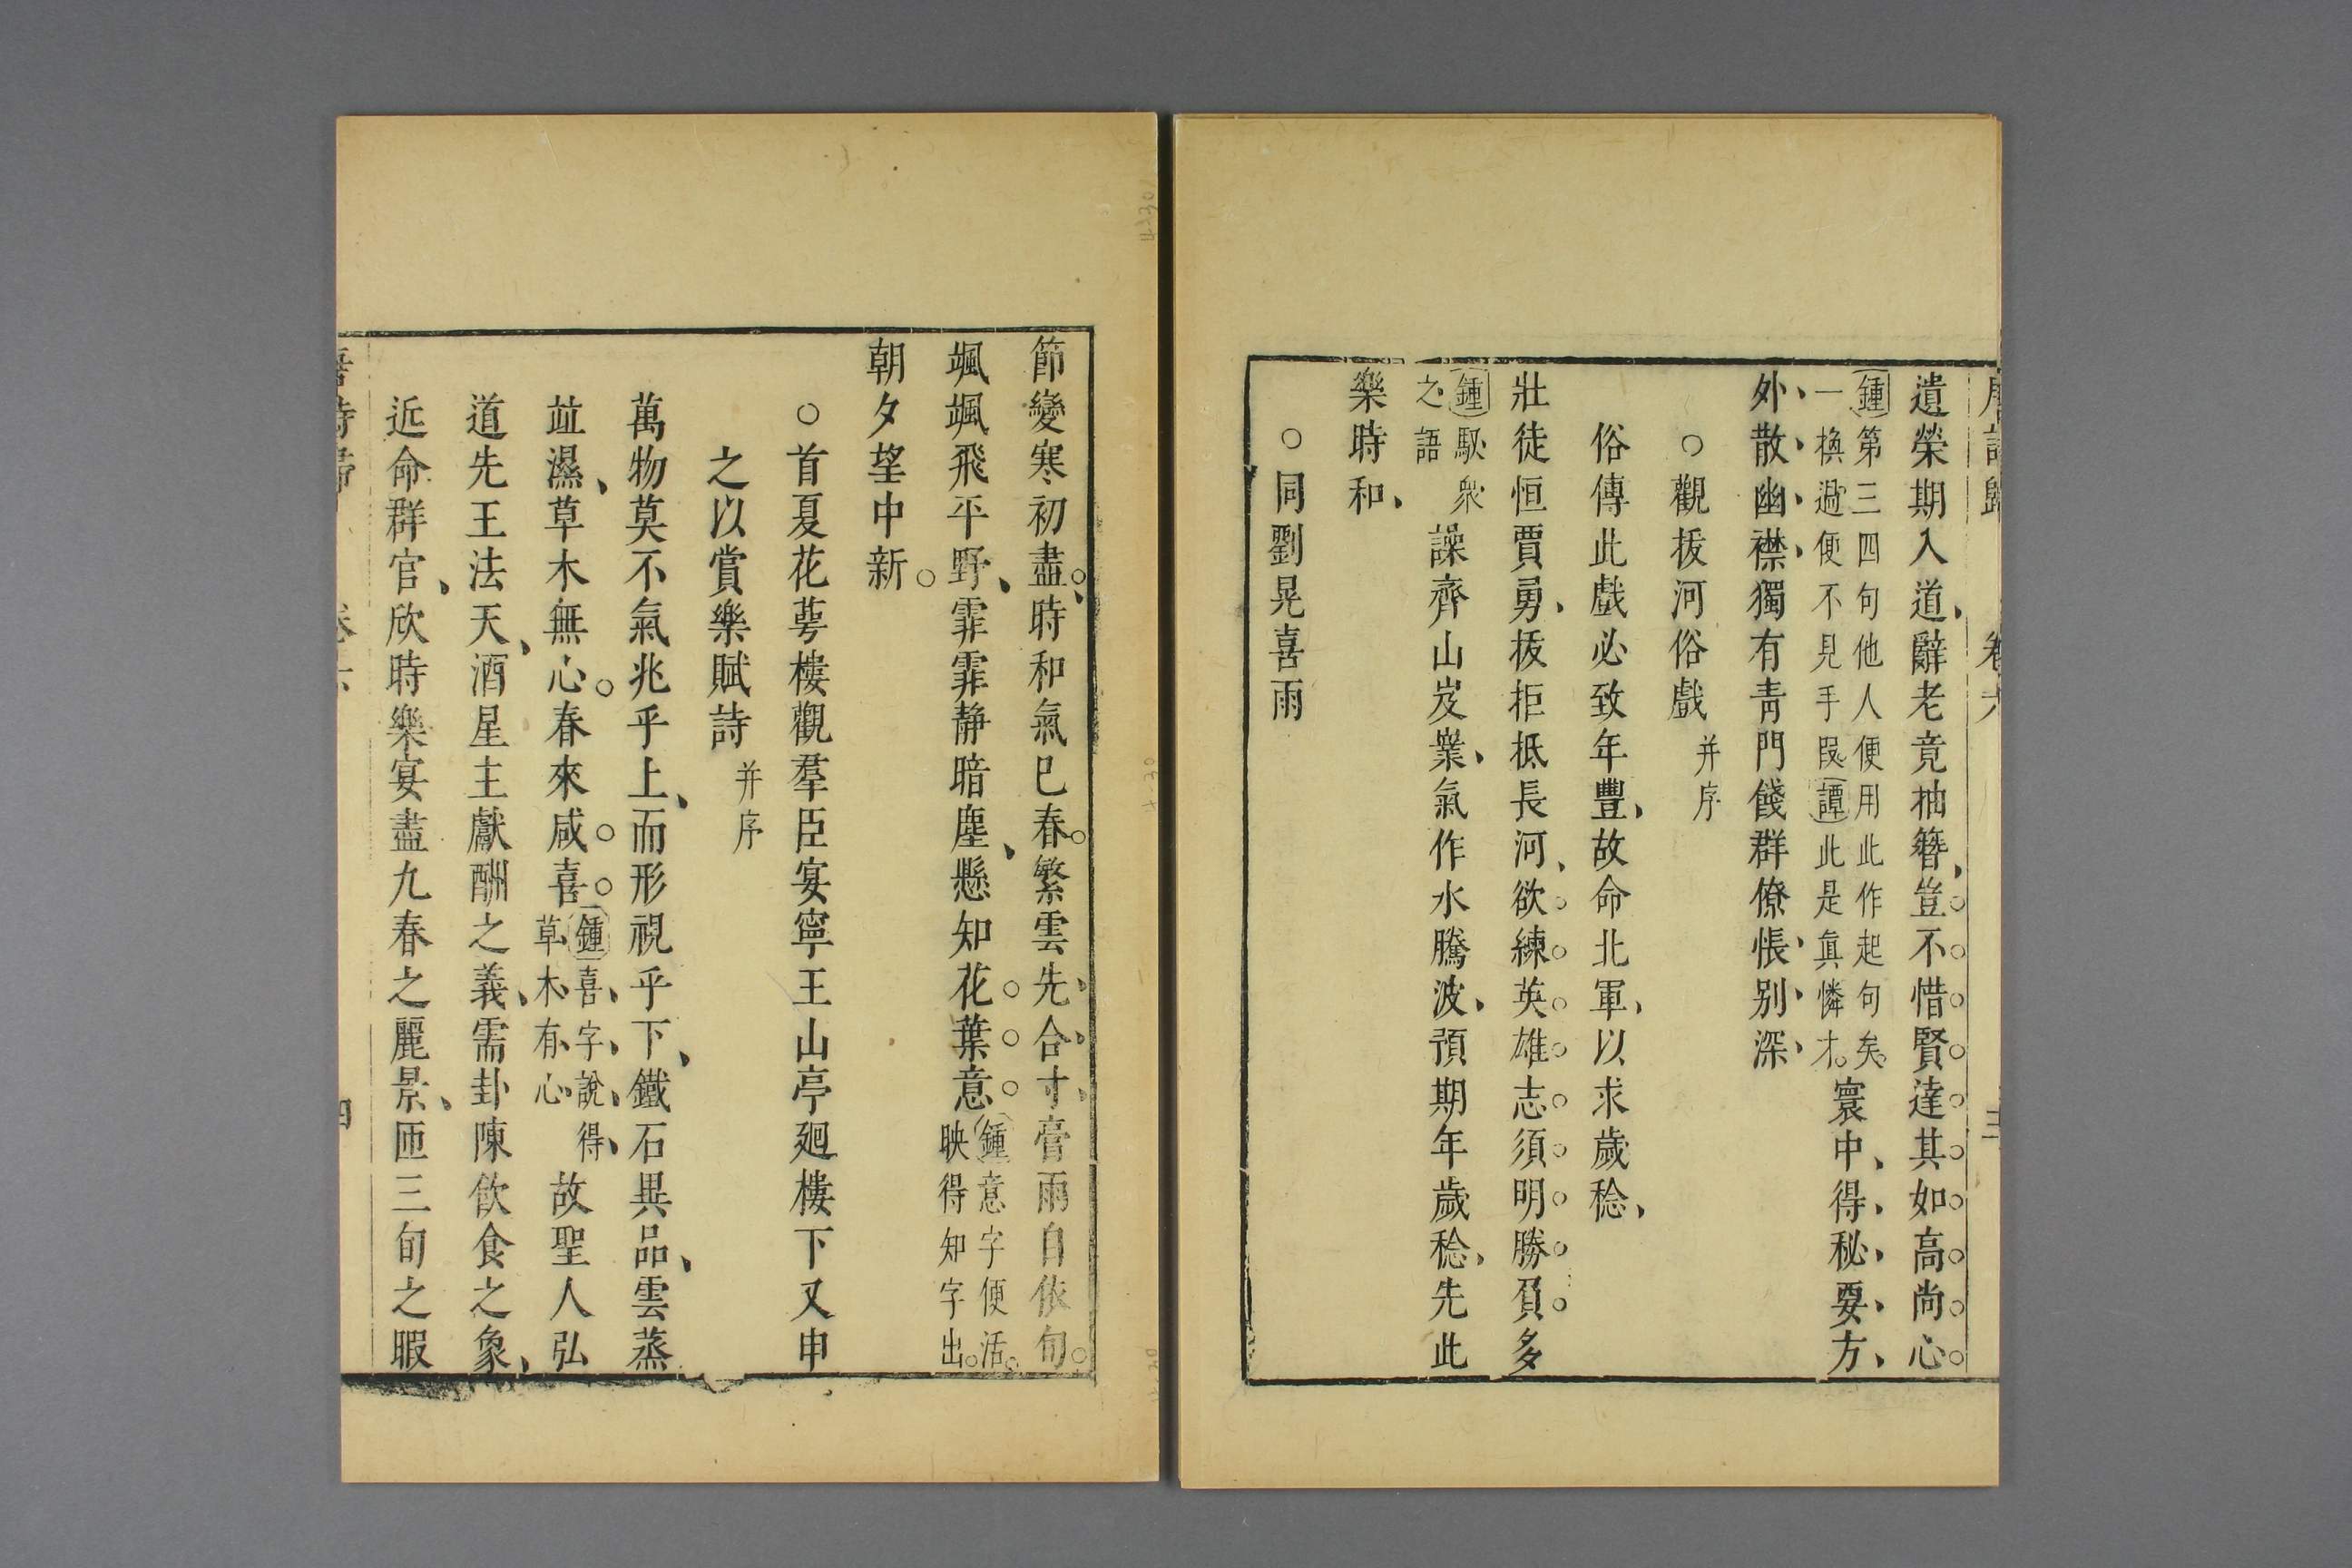 唐詩歸 卷六 三
遺榮期入道辭老竟抽簪豈不惜賢達其如高尚心
鍾第三四句他人便用此作起句矣
一換過便不見手段譚此是眞憐才 寰中得秘要方
外散幽襟獨有青門餞群僚悵别深
○觀拔河俗戲 并序
俗傳此戲必致年豐故命北軍以求歲稔
壯徒恒賈勇拔拒抵長河欲練英雄志須明勝負多
鍾馭衆
之語 譟齊山岌嶪氣作水騰波預期年歲稔先此
樂時和
○同劉晃喜雨
節變寒初盡時和氣巳春繁雲先合寸膏雨自依旬
颯颯飛平野霏霏静暗塵懸知花葉意鍾意字便活
映得知字出
朝夕望中新
○首夏花萼樓觀羣臣宴寧王山亭廻樓下又申
之以賞樂賦詩 并序
萬物莫不氣兆乎上而形視乎下鐵石異品雲蒸
並濕草木無心春來咸喜鍾喜字說得
草木有心 故聖人弘
道先王法天酒星主獻酬之義需卦陳飲食之象
近命群官欣時樂宴盡九春之麗景匝三旬之暇
詩歸 卷六 四